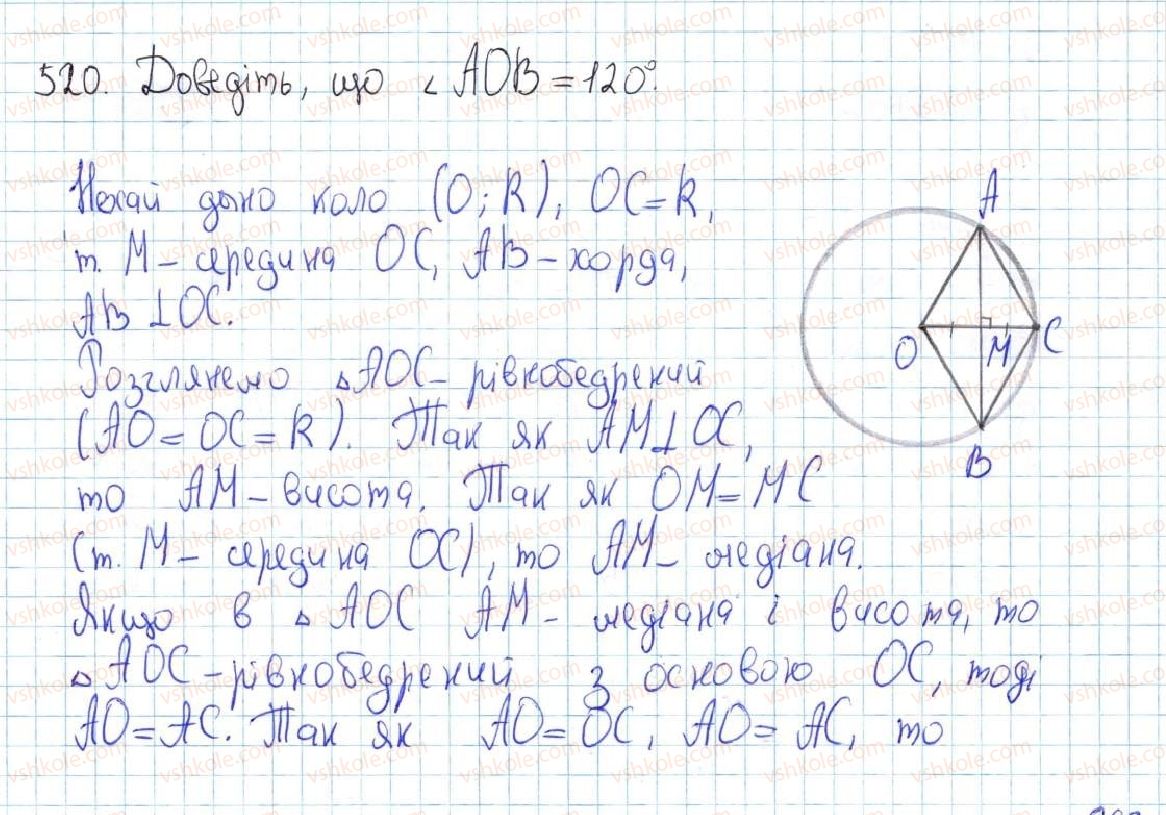 520. Доведіть, що ∠AOB = 120°.
Нехай дано коло (O; R), OC = R,
т. M – середина OC, AB – хорда,
AB ⊥ OC.
Розглянемо △AOC – рівнобедрений
(AO = OC = R). Так як AM ⊥ OC,
то AM – висота. Так як OM = MC
(т. M – середина OC), то AM – медіана.
Якщо в △AOC AM – медіана і висота, то
△AOC – рівнобедрений з основою OC, тоді
AO = AC. Так як AO = OC, AO = AC, то
A
O
M
C
B
vshkole.com